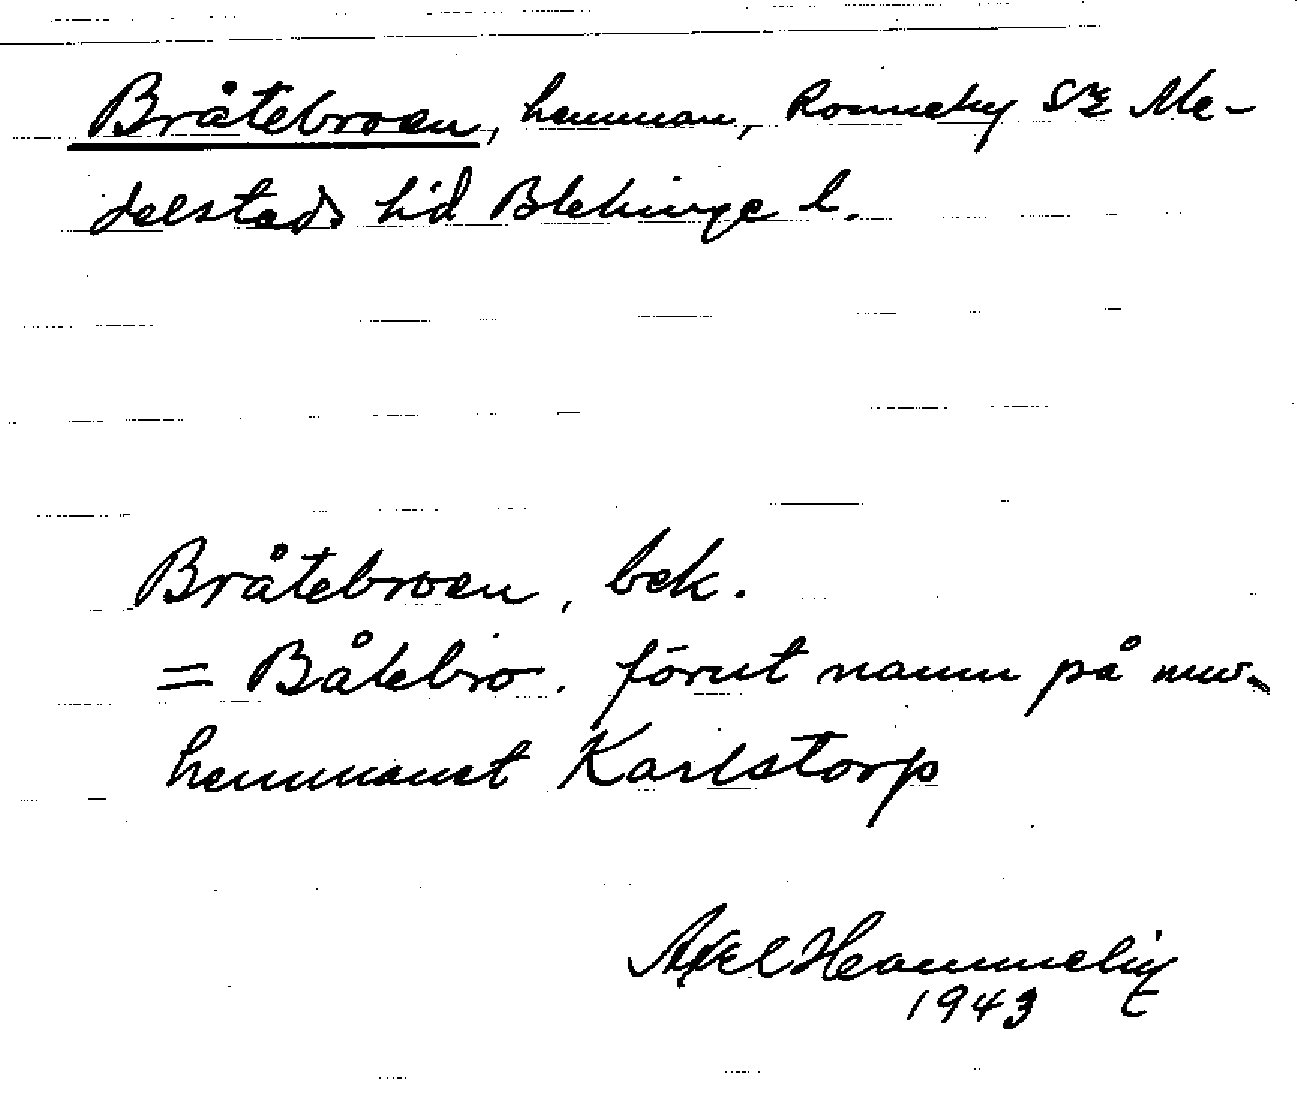 Bråtebroen, hemman, Ronneby sn Me-
delstads hd Blekinge l.
Bråtebroen, bek.
= Båtebro. förut namn på nuv.
hemmanet Karlstorp
Axel Hammelig
1943